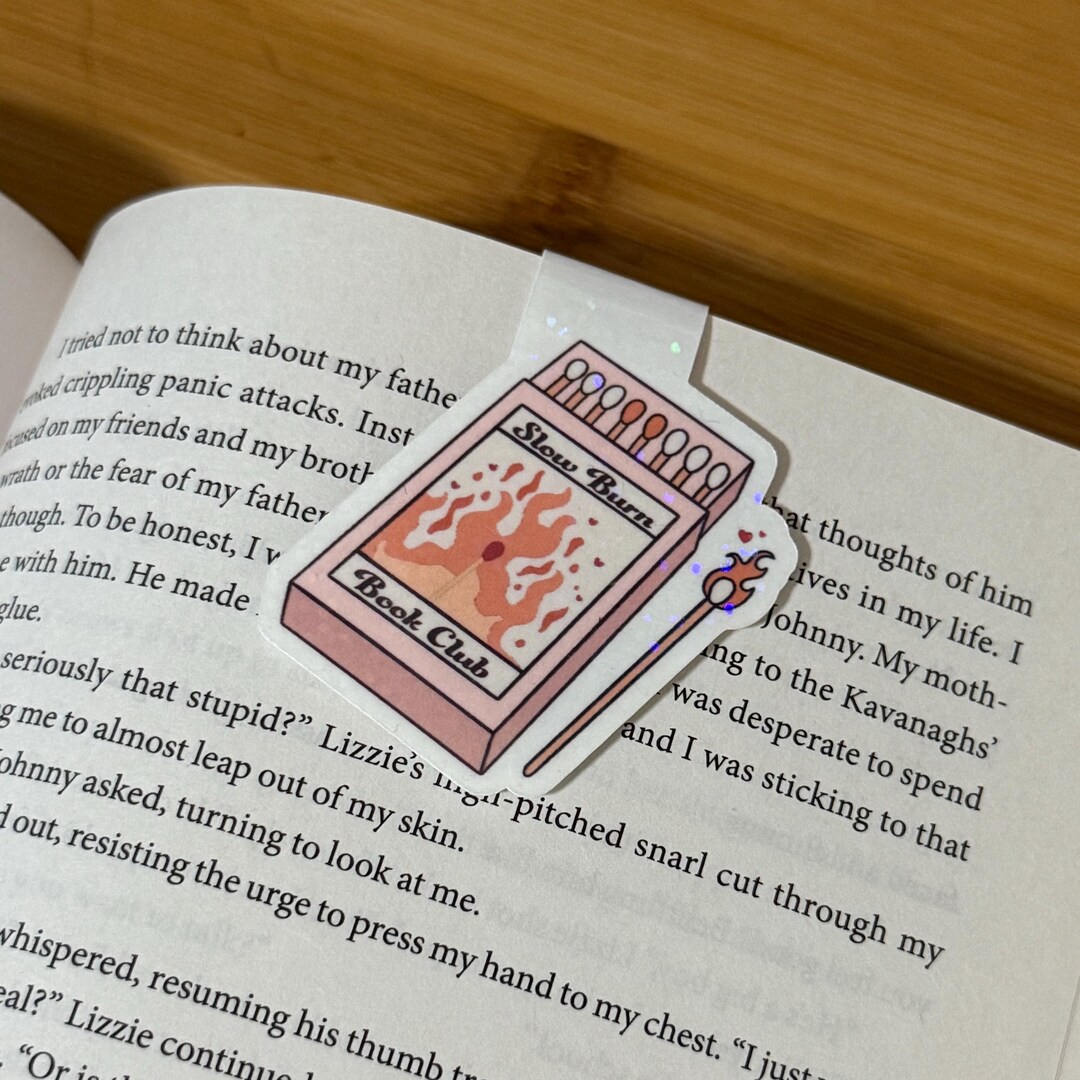 Slow Burn
Book Club
I tried not to think about my fathe
crippling panic attacks. Inst
on my friends and my broth
wrath or the fear of my father
though. To be honest, I w
e with him. He made
glue.
that thoughts of him
lives in my life. I
Johnny. My moth-
ng to the Kavanaghs’
was desperate to spend
and I was sticking to that
seriously that stupid?” Lizzie’s high-pitched snarl cut through my
g me to almost leap out of my skin.
Johnny asked, turning to look at me.
d out, resisting the urge to press my hand to my chest. “I just
whispered, resuming his thumb tr
eal?” Lizzie continue
“Or is th